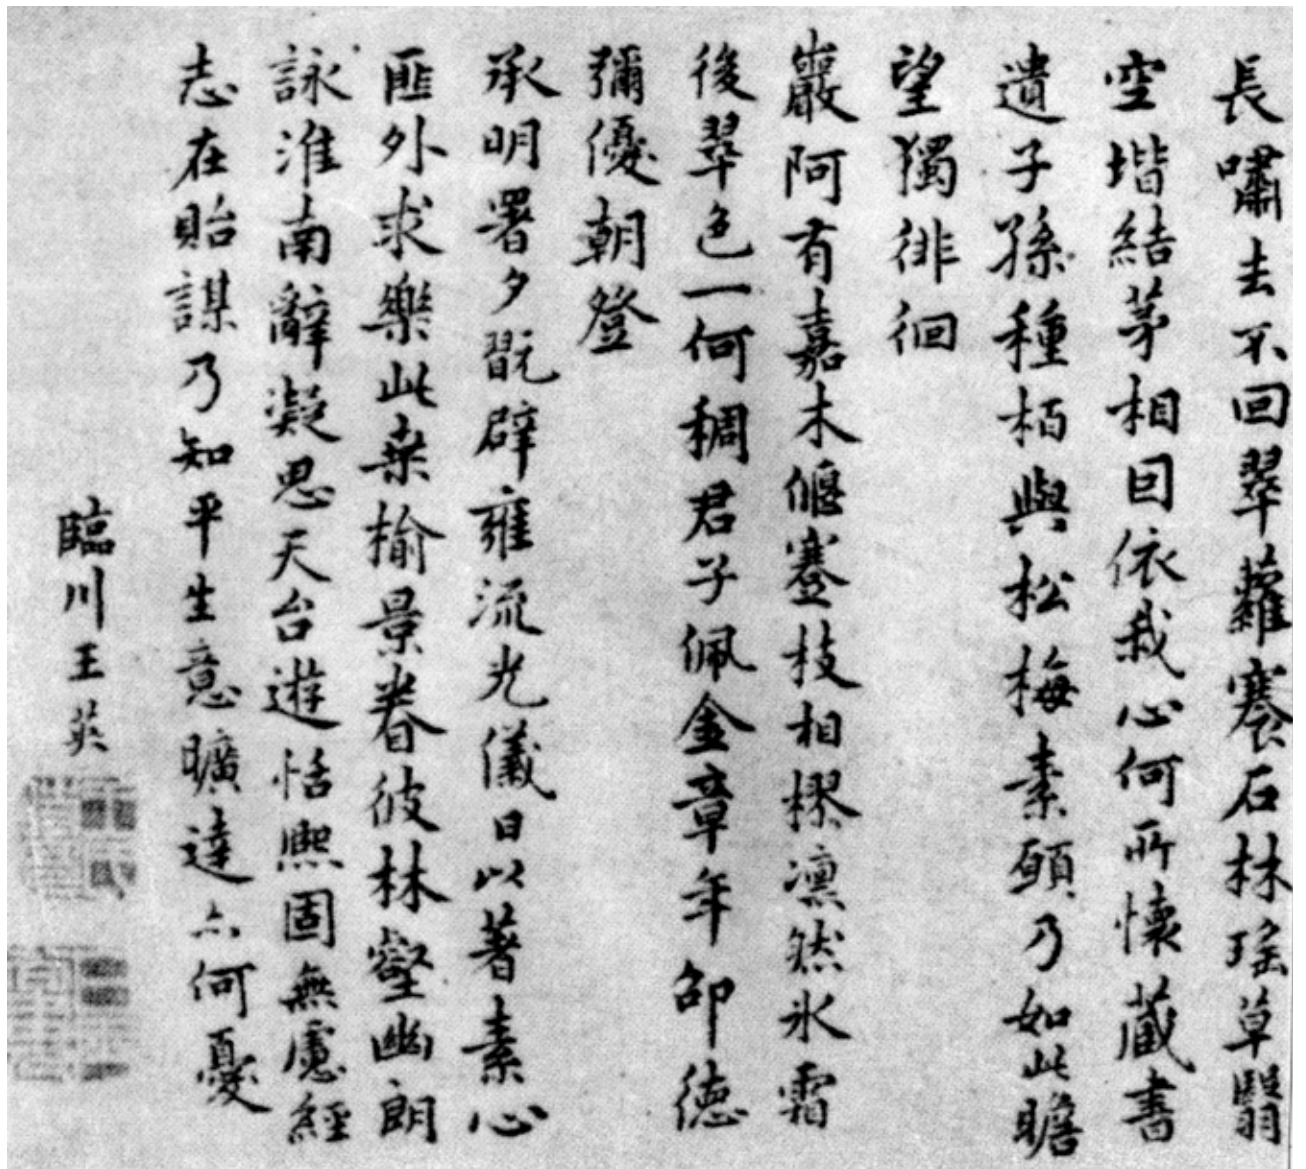 長嘯去不回翠蘿寒石林瑤草翳
空堦結茅相因依栽心何所懷藏書
遺子孫種栢與松梅素願乃如此瞻
望獨徘徊
巖阿有嘉木偃蹇枝相樛凛然氷霜
後翠色一何稠君子佩金章年卲德
彌優朝登
承明署夕翫辟雍流光儀日以著素心
匪外求樂此桒榆景眷彼林壑幽朗
詠淮南辭凝思天台遊恬熙固無慮經
志在貽謀乃知平生意曠達亦何憂
臨川王英